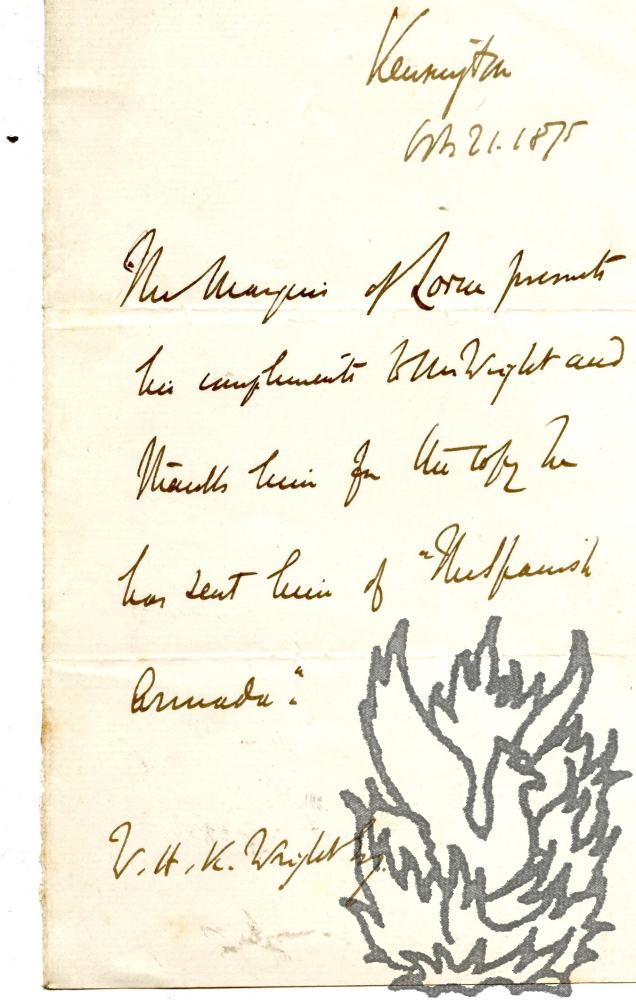 Kensington
Oct 21. 1875
The Marquis of Lorne presents
his compliments to Mr Wright and
thanks him for the copy he
has sent him of "The Spanish
Armada".
W. H. K. Wright Esq.